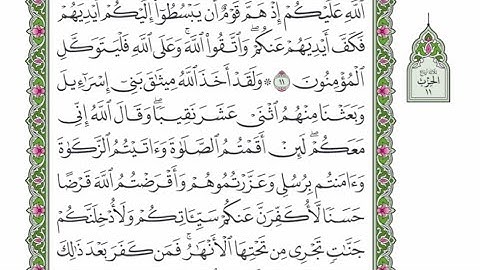 ٱللَّهِ عَلَيْكُمْ إِذْ هَمَّ قَوْمٌ أَن يَبْسُطُوٓا۟ إِلَيْكُمْ أَيْدِيَهُمْ
فَكَفَّ أَيْدِيَهُمْ عَنكُمْ ۖ وَٱتَّقُوا۟ ٱللَّهَ ۚ وَعَلَى ٱللَّهِ فَلْيَتَوَكَّلِ
ٱلْمُؤْمِنُونَ ١١ ۞ وَلَقَدْ أَخَذَ ٱللَّهُ مِيثَٰقَ بَنِىٓ إِسْرَٰٓءِيلَ
وَبَعَثْنَا مِنْهُمُ ٱثْنَىْ عَشَرَ نَقِيبًا ۖ وَقَالَ ٱللَّهُ إِنِّى
مَعَكُمْ ۖ لَئِنْ أَقَمْتُمُ ٱلصَّلَوٰةَ وَءَاتَيْتُمُ ٱلزَّكَوٰةَ
وَءَامَنتُم بِرُسُلِى وَعَزَّرْتُمُوهُمْ وَأَقْرَضْتُمُ ٱللَّهَ قَرْضًا
حَسَنًا لَّأُكَفِّرَنَّ عَنكُمْ سَيِّـَٔاتِكُمْ وَلَأُدْخِلَنَّكُمْ
جَنَّٰتٍ تَجْرِى مِن تَحْتِهَا ٱلْأَنْهَٰرُ ۚ فَمَن كَفَرَ بَعْدَ ذَٰلِكَ
الحزب
١١